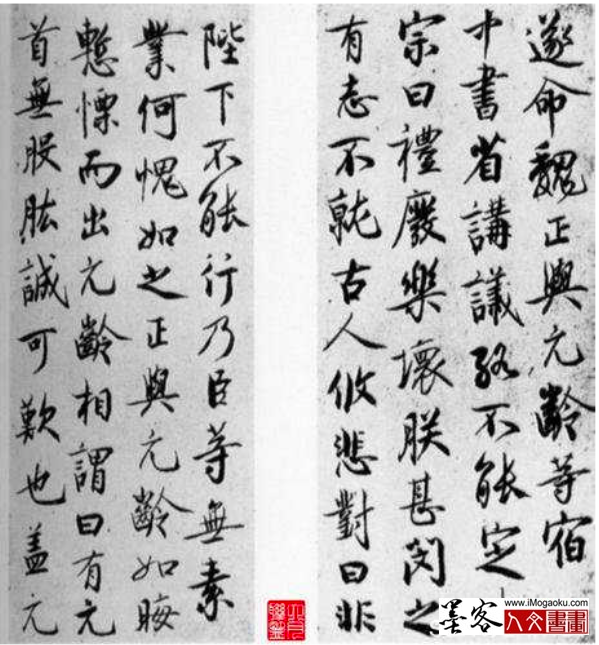 遂命魏正與元齡等宿
中書省講議終不能定
宗曰禮廢樂壞朕甚閔之
有志不就古人攸悲對曰非
陛下不能行乃臣等無素
業何愧如之正與元齡如晦
慙慄而出元齡相謂曰有元
首無股肱誠可歎也蓋元
墨客
www.iMogaoku.com
人文書畫